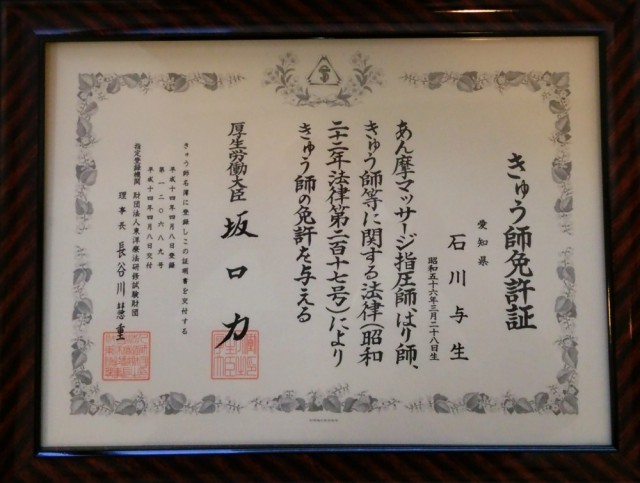 きゅう師免許証
愛知県
石川与生
昭和五十六年三月二十八日生
あん摩マッサージ指圧師、はり師、
きゅう師等に関する法律(昭和
二十二年法律第二百十七号)により
きゅう師の免許を与える
厚生労働大臣 坂口力
きゅう師名簿に登録しこの証明書を交付する
平成十四年四月八日登録
第一二〇六八九号
平成十四年四月八日交付
指定登録機関 財団法人東洋療法研修試験財団
理事長 長谷川慧重